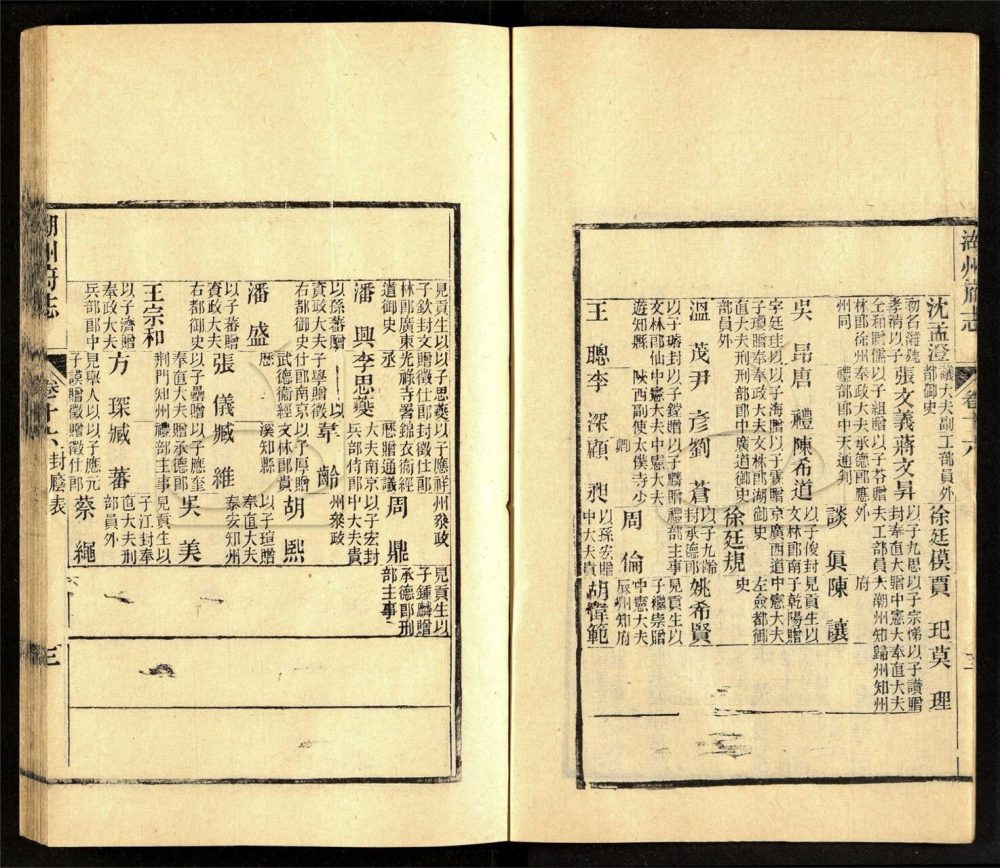 湖州府志
卷十六
三
沈孟澄
議大夫副工部員外
都御史
徐廷模賈 玘莫 理
張文義蔣文昇
以子九思以子宗悌以子讚贈
孝淸以子
封奉直大贈中憲大奉直大夫
仝和贈儒以子組贈以子芥贈
夫工部員大潮州知歸州知州
林郎徐州奉政大夫承德郎應外
府
州同
禮部郎中天通判
吳 昂唐 禮陳希道
談 眞陳 讓
字廷珪以以子海贈以子霖贈
以子俊封見貢生以
子瓊贈奉奉政大夫文林郎湖
文林郎南子乾陽贈
直大夫刑刑部郎中廣道御史
京廣西道中憲大夫
部員外
御史
左僉都御
史
溫 茂尹 彦劉 蒼
徐廷規
姚希賢
以子璹封以子鏜贈以子麟贈
以子九韶
封承德郎
見貢生以
文林郎仙中憲大夫中憲大夫
禮部主事
子繼崇贈
遊知縣
陝西副使太僕寺少
卿
周 倫
中憲大夫
辰州知府
王 聰李 深顧 昶
以孫宏贈
中大夫貴
胡偉範
見貢生以以子思㷼以子應祥
州叅政
見貢生以
子欽封文贈徵仕郎封徵仕郎
子鍾麟贈
林郎廣東光祿寺署錦衣衞經
承德郎刑
道御史
丞
歷贈通議
周 鼎
部主事
潘 興李思㷼
大夫南京
以子宏封
以孫蕃贈
以
兵部侍郎
中大夫貴
資政大夫子學贈徵
韋 齡
州叅政
右都御史
仕郎南京以子厚贈
胡 熙
潘 盛
武德衞經文林郎貴
以子瑄贈
歷
溪知縣
奉直大夫
以子蕃贈
張 儀臧 維
泰安知州
資政大夫
右都御史
以子壘贈以子應奎
吳 美
奉直大夫贈承德郎
見貢生以
王宗和
荆門知州禮部主事
子江封奉
以子濟贈
方 琛臧 蕃
直大夫刑
奉政大夫
見舉人以以子應元
部員外
兵部郎中
子謨贈徵贈徵仕郎
蔡 繩
湖州府志
卷十六 封廕表
三